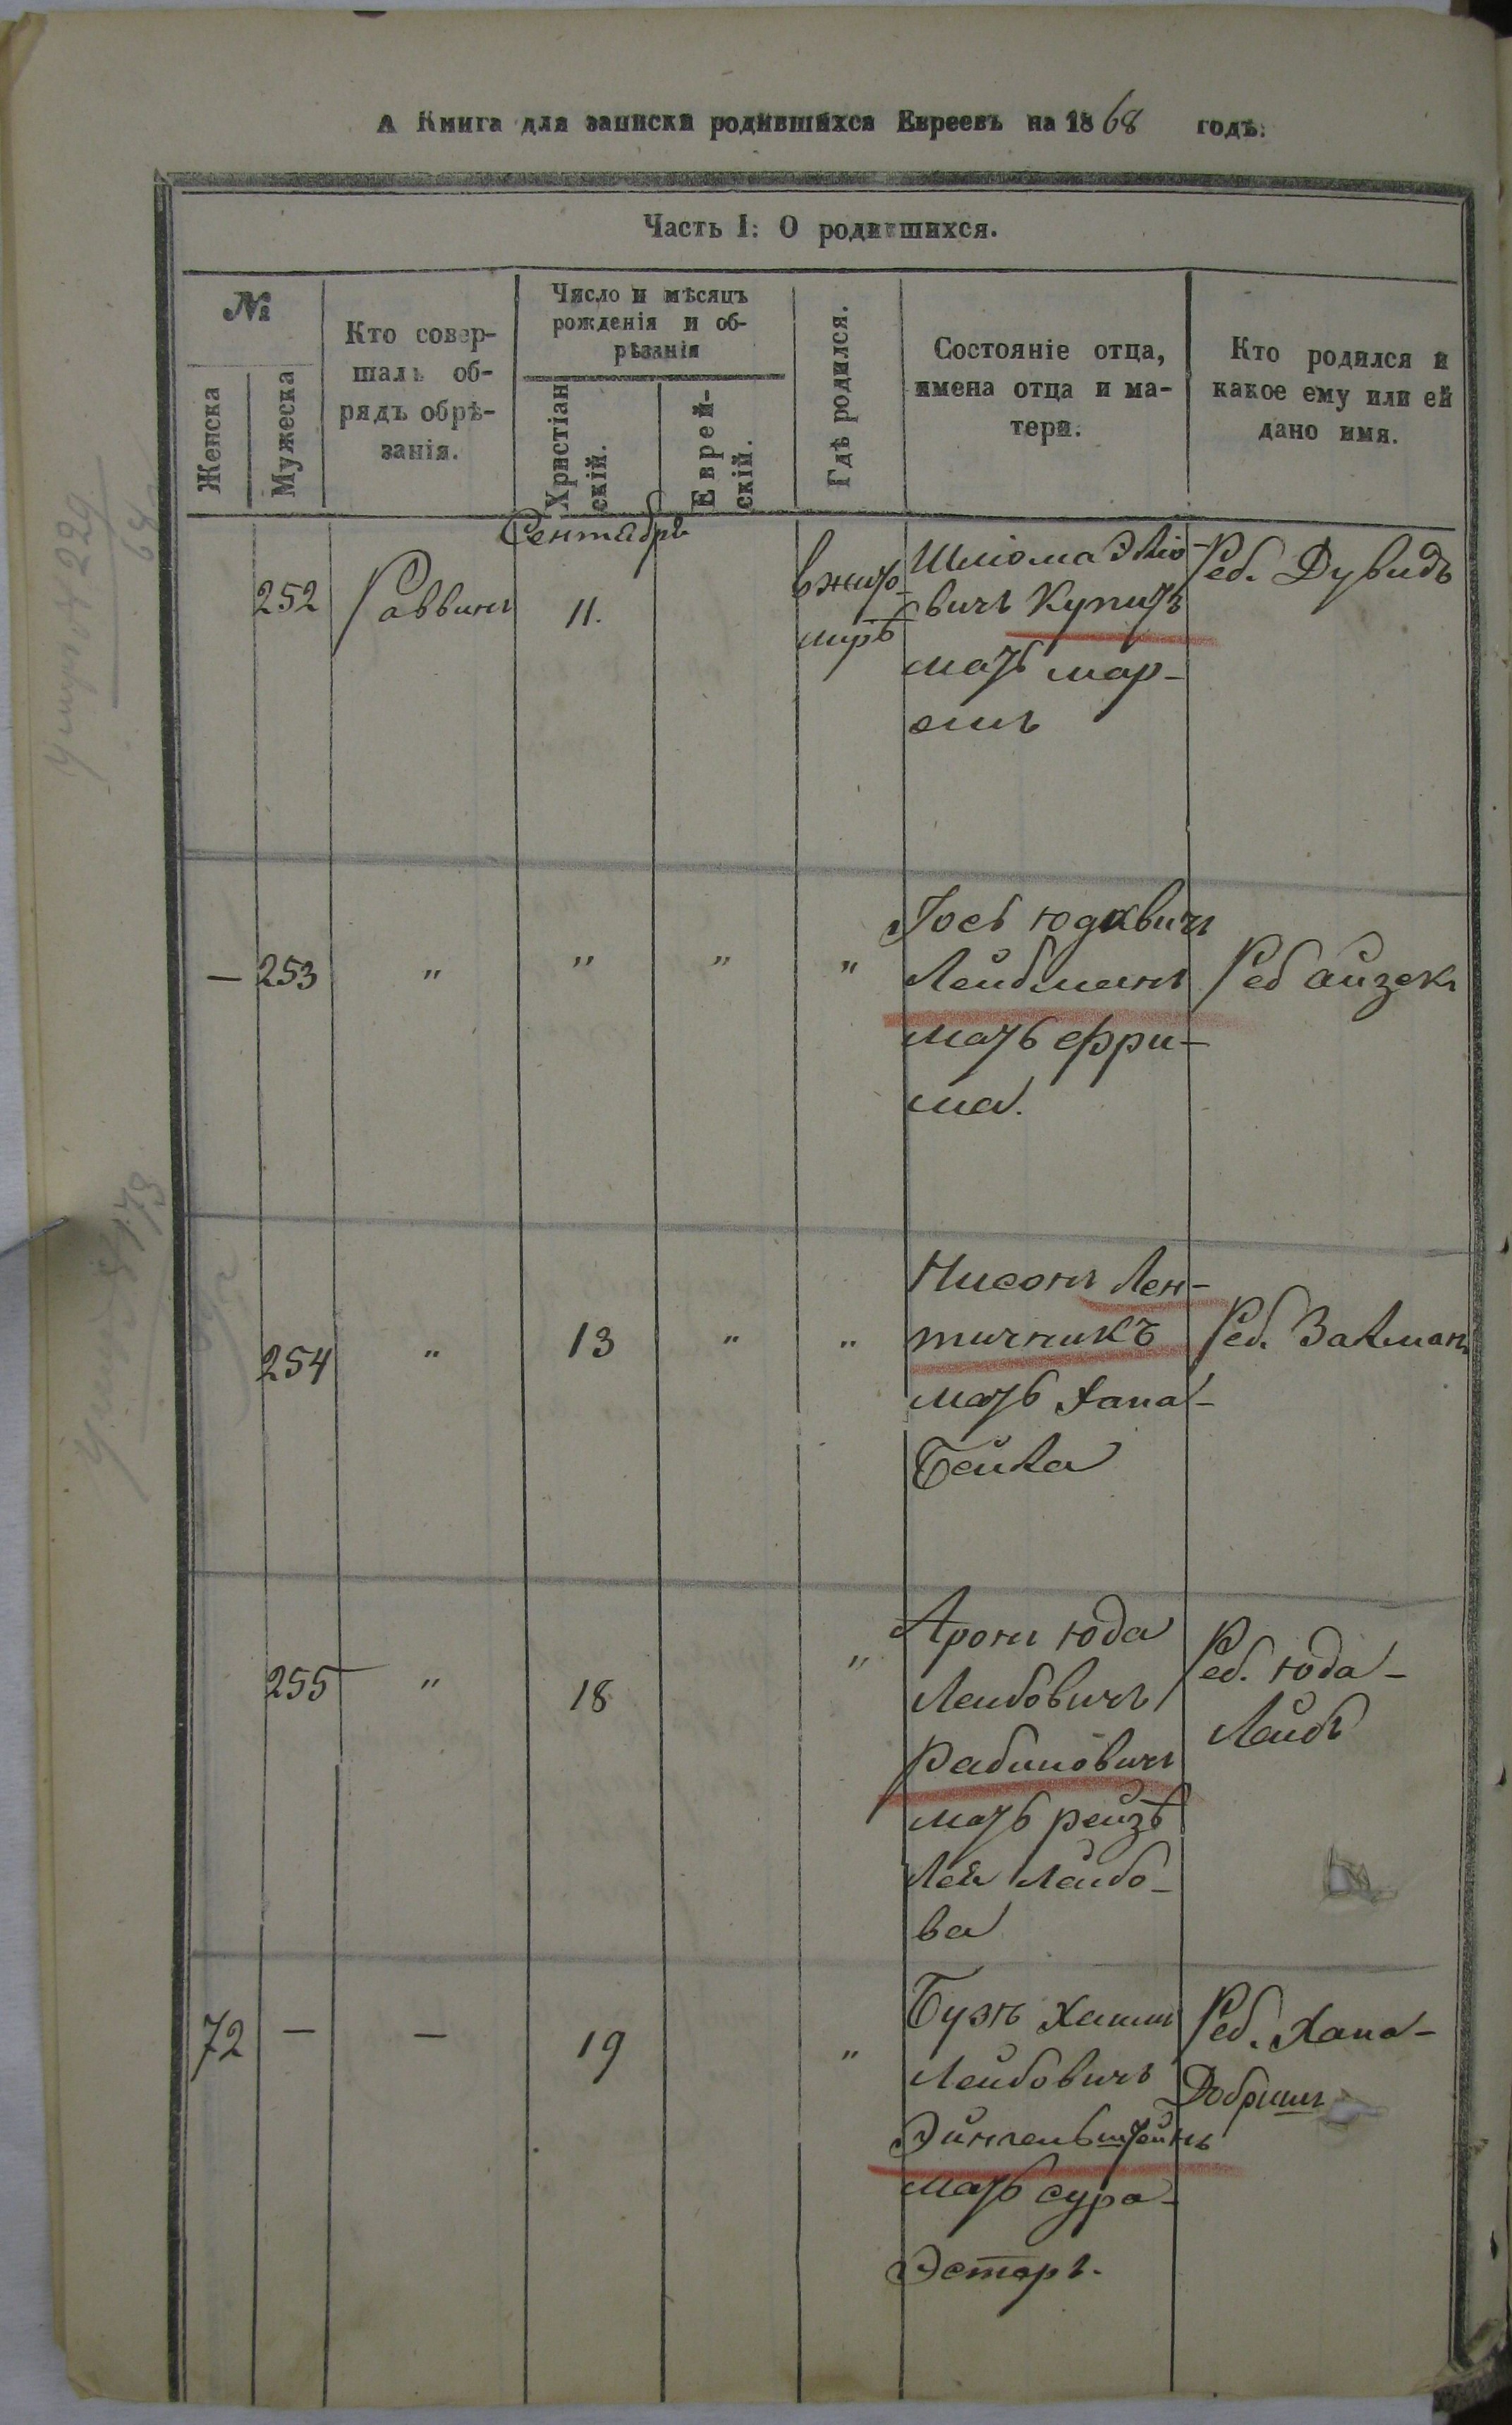 А Книга для записки родившихся Евреевъ на 1868 годъ.
Часть I: О родившихся.
№
Женска
Мужеска
Кто совер-
шалъ об-
рядъ обрѣ-
занія.
Число и мѣсяцъ
рожденія и об-
рѣзанія
Христіан
скій.
Еврей-
скій.
Гдѣ родился.
Состояніе отца,
имена отца и ма-
тери.
Кто родился и
какое ему или ей
дано имя.
Сентябрь
252
Раввинъ
11.
в жито-
мирѣ
Шліома Эліо-
вичъ Купитъ
мать мар-
Реб. Дувидъ
— 253
"
"
"
"
Іось Юдковичъ
Лейбманъ
мать Фри-
ма.
Реб айзекъ
254
"
13
"
"
Нисонъ Лен-
тичникъ
мать Хана-
Бейла
Реб. Залманъ
255
"
18
"
Аронъ Юда
Лейбовичъ
Рабиновичъ
мать рейзѣ
Лея Лейбо-
ва
Реб. Юда-
Лейбъ
72
—
—
19
"
Бузя Хаимъ
Лейбовичъ
мать сура-
Эстеръ.
Реб. Хана-
Добришъ